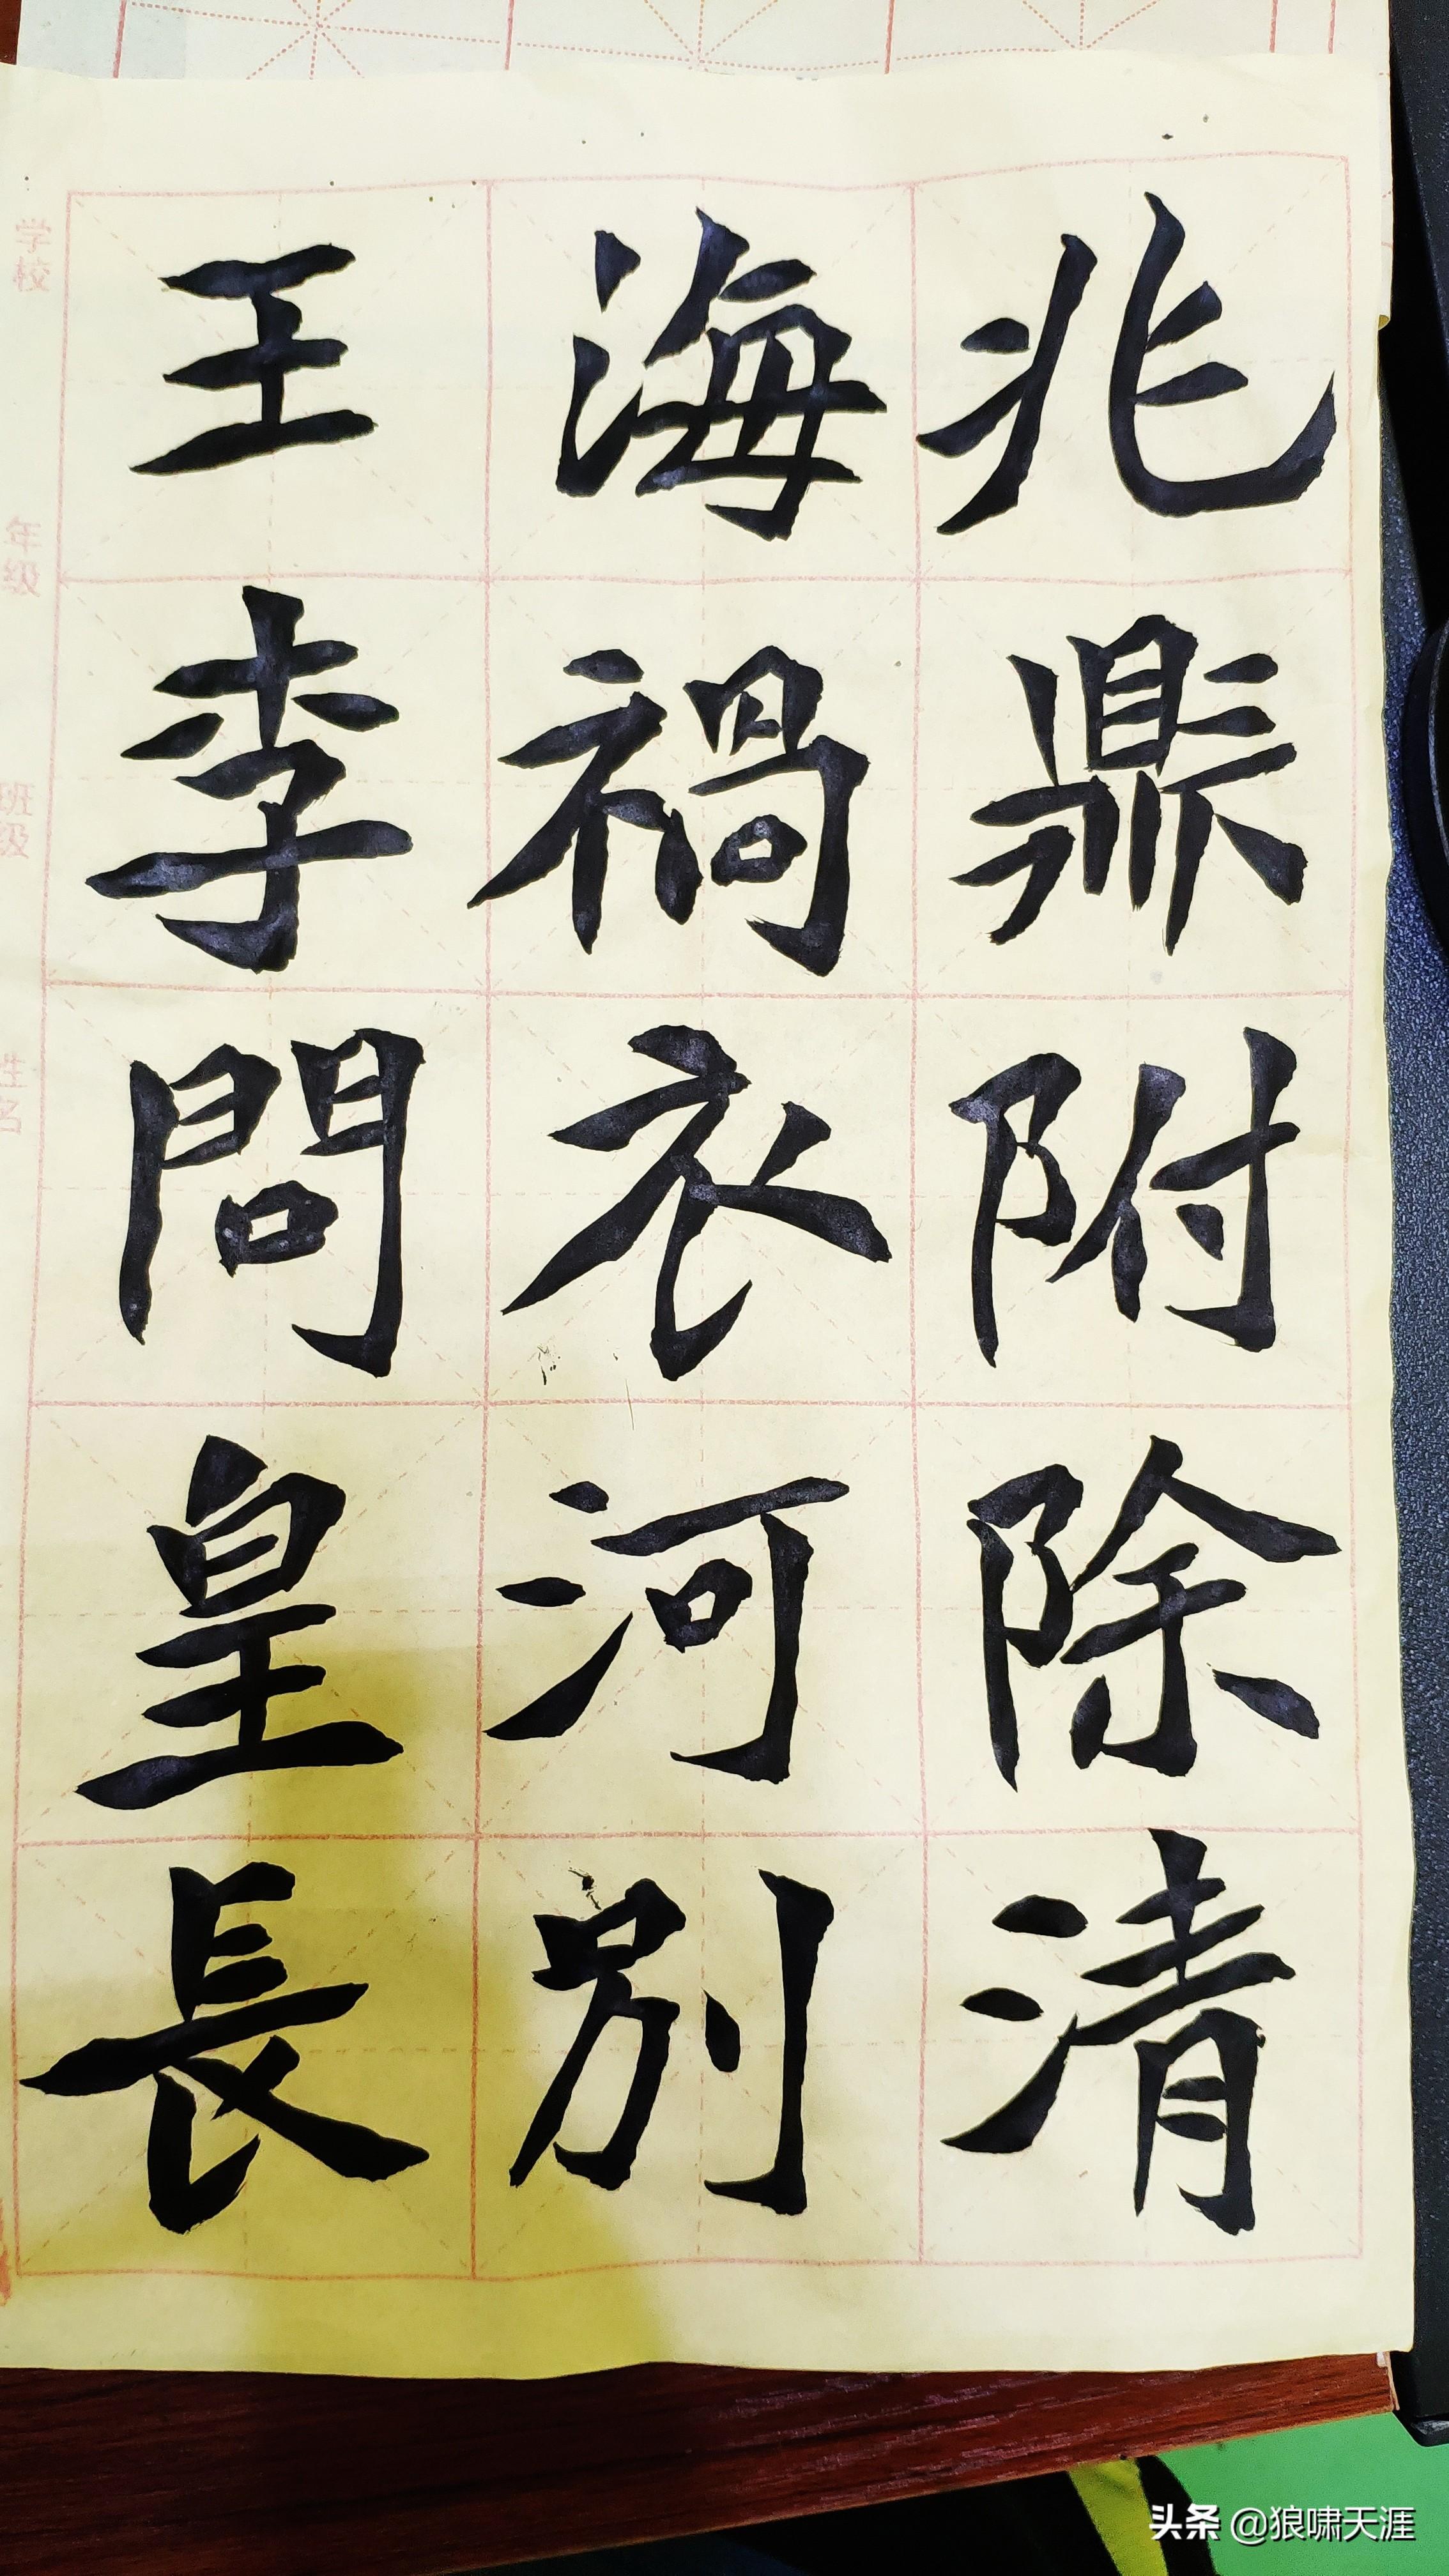 兆鼎附除清
海禍衣河別
王李問皇長
学校
年级
班级
姓名
头条 @狼啸天涯